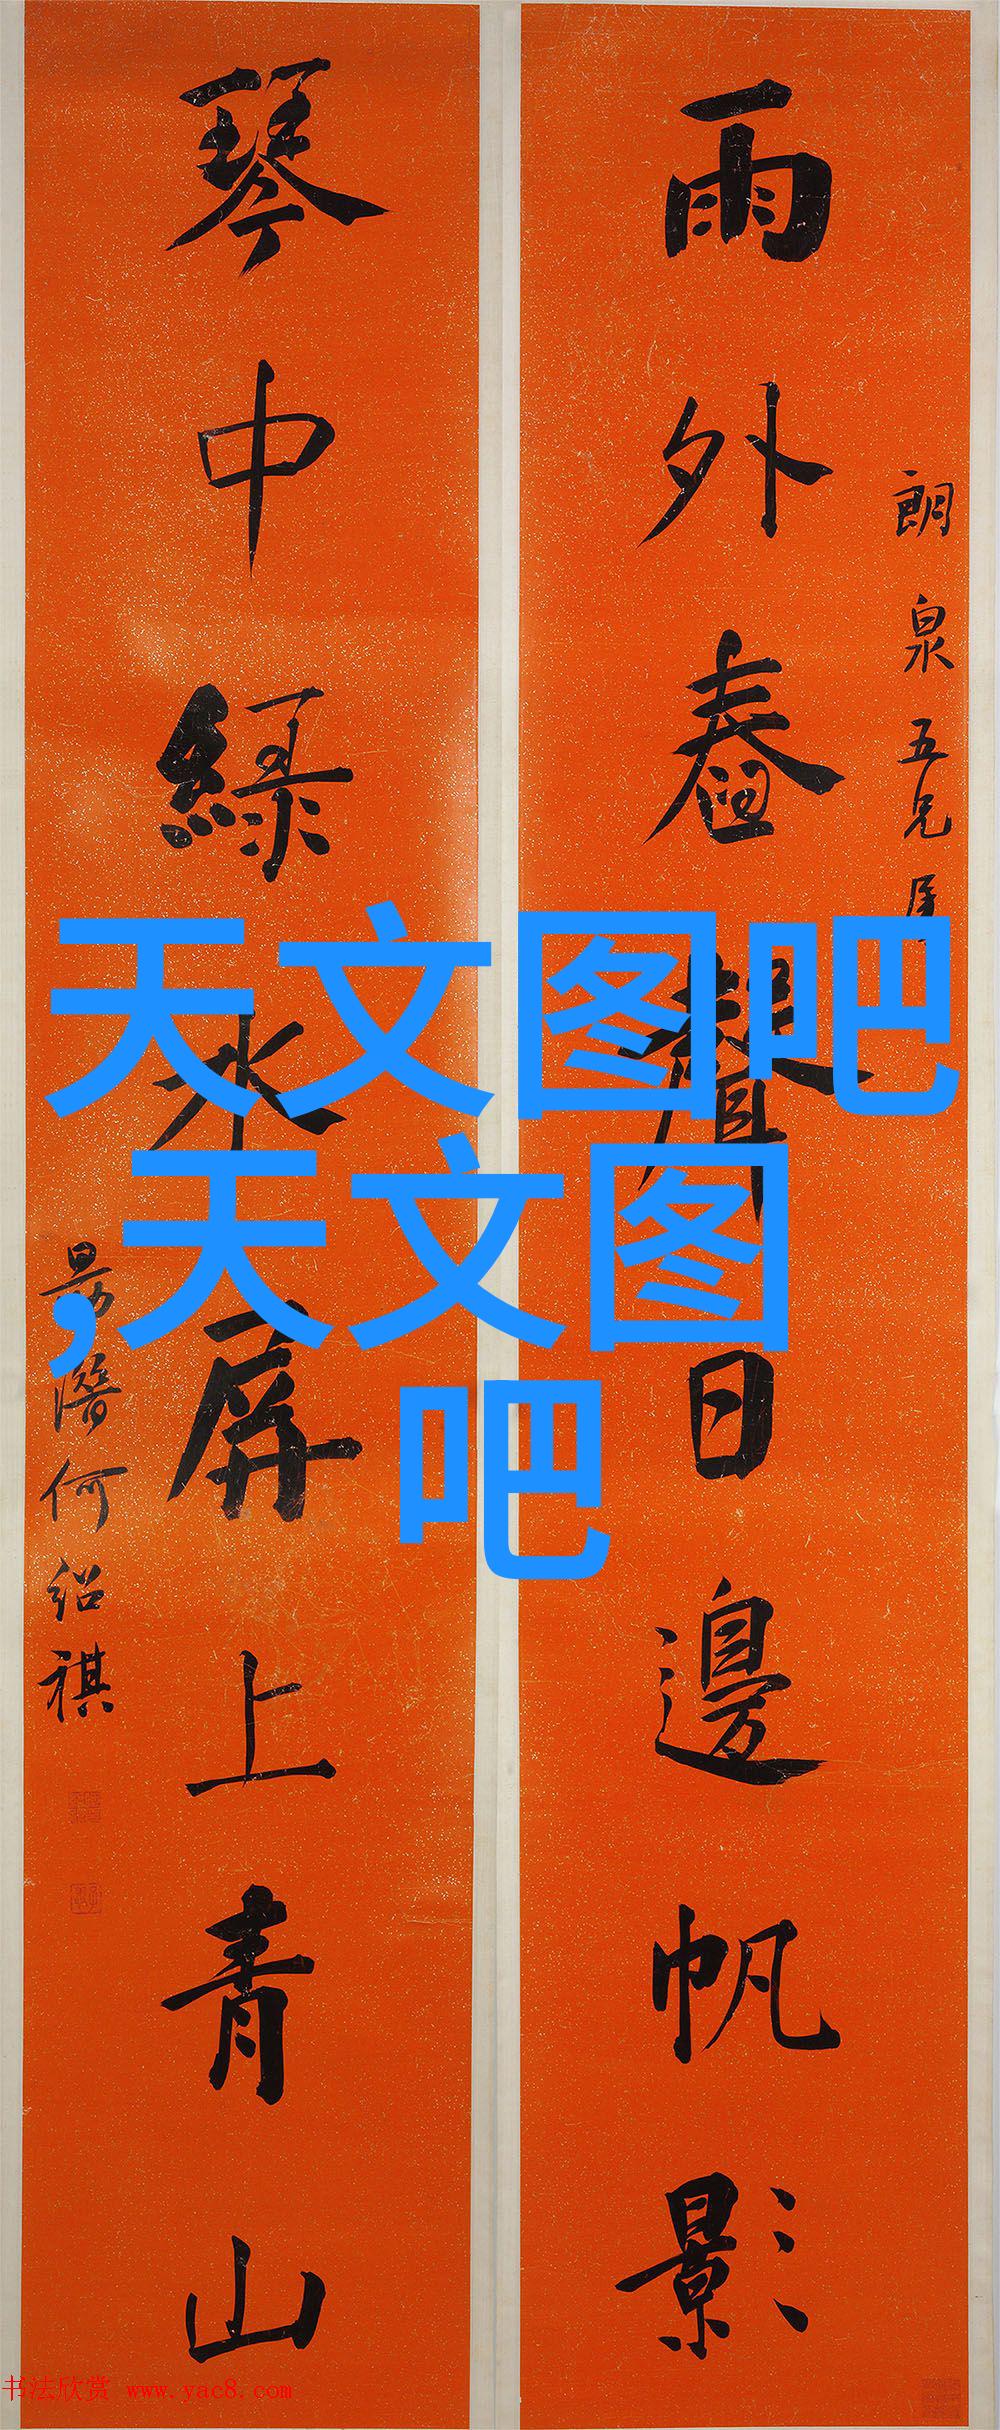 雨外舂聲日邊帆影
朗泉五兄屬
琴中綠水屏上青山
勗潛何紹祺
天文图吧
,天文图
吧
书法欣赏 www.yac8.com